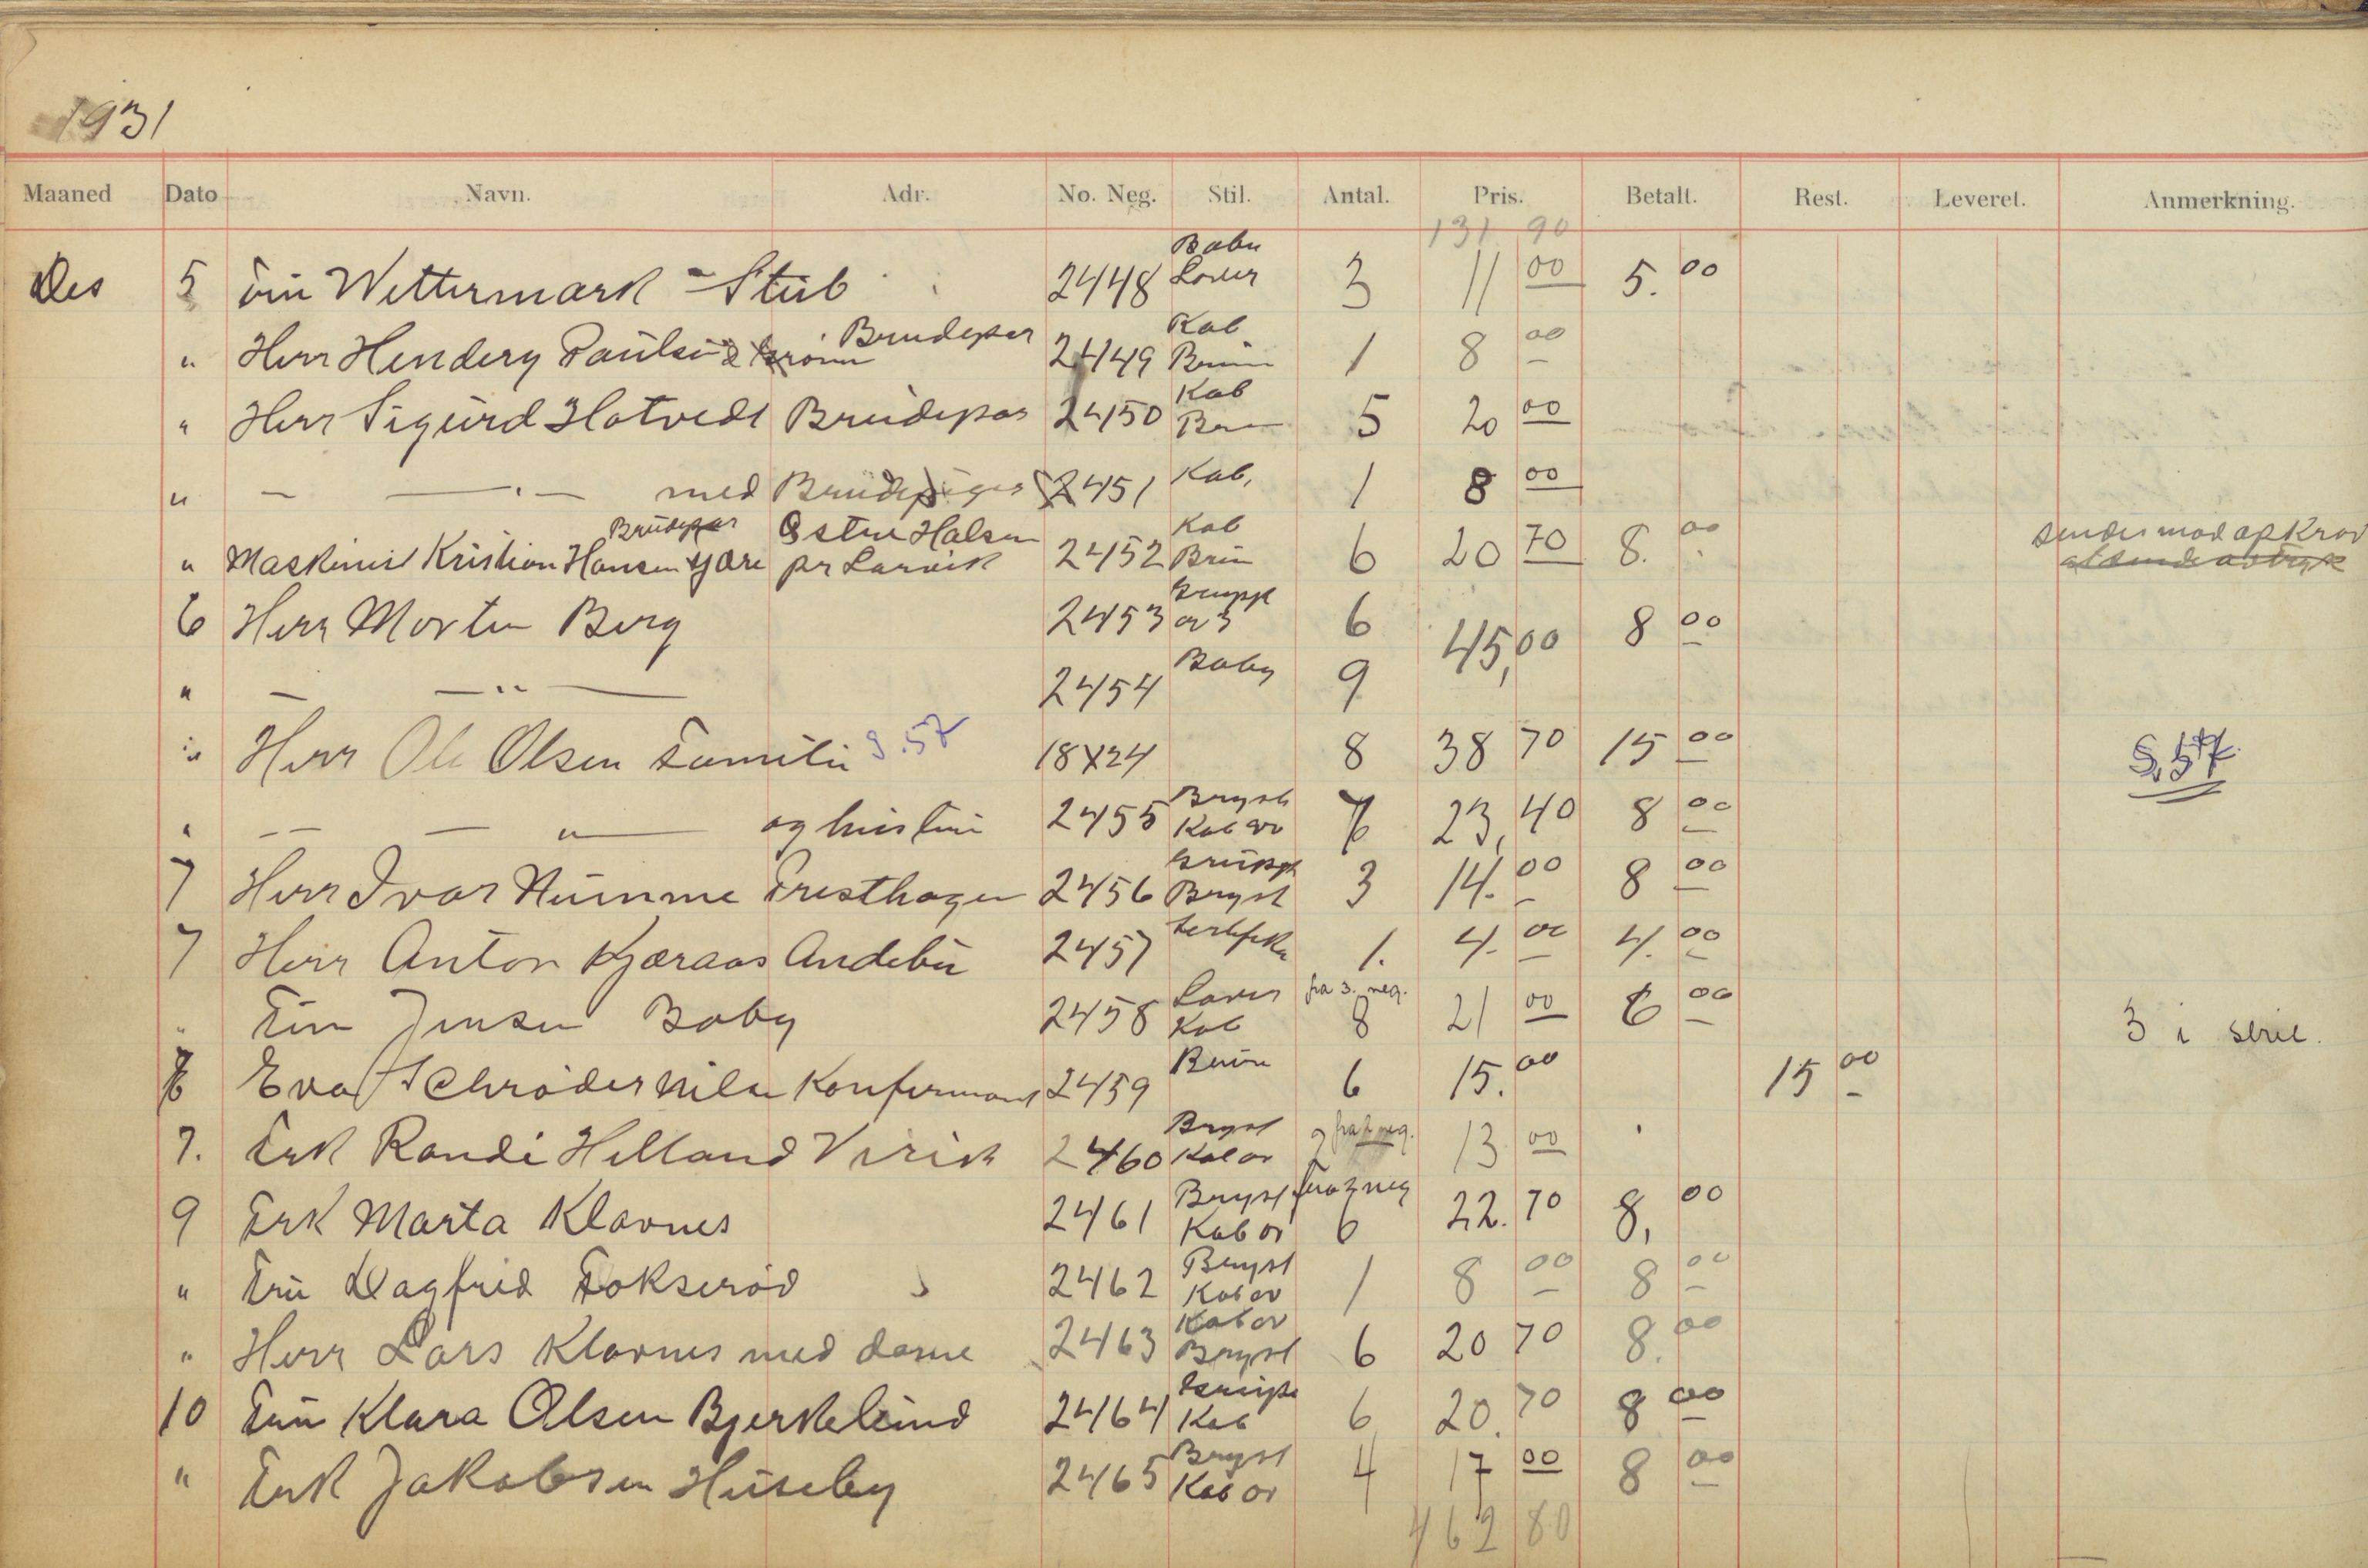 1931
Maaned Dato Navn. Adr. No. Neg. Stil. Antal. Pris. Betalt. Rest. Leveret. Anmerkning.
131 90
Des 5 Fru Wettermark - Stub 2448 3 11 00 5. 00
" Herr Hendery Paulsen Brudepar 2449 Kab Brun 1 8 00
" Herr Sigurd Hotvedt Brudepar 2450 Kab 5 20 00
" — — " — med Brudepiger 2451 Kab. 1 8 00
" Maskinist Kristian Hansen Kjære Brudepar Østre Halsen pr Larvik 2452 Kab Brun 6 20 70 8. 00 sendes mod opkrav
6 Herr Morten Berg 2453 Gruppe av 3 6 45,00 8 00
" — — " — 2454 Baby 9
" Herr Ole Olsen Familie S.57 18X24 8 38 70 15 00 S.57
" — — " — og hustru 2455 Bryst Kab av 23,40 8 00
7 Herr Ivar Numme Presthagen 2456 Gruppe Bryst 3 14. 00 8 00
7 Herr Anton Kjæraas Andebu 2457 1. 4. 00 4. 00
" Fru Jensen Baby 2458 Kab fra 3. neg. 8 21 00 6 00 3 i serie.
Eva Schrøder Nilsen Konfirmant 2459 Brun 6 15. 00 15 00
7. Frk Randi Helland Virik 2460 Bryst Kab av 2 13 00
9 Frk Marta Klavnes 2461 Bryst Kab av fra 2 neg 6 22. 70 8, 00
" Fru Dagfrid Fokserød 2462 Bryst Kab av 1 8 00 8 00
" Herr Lars Klavnes med dame 2463 Kab av Bryst 6 20 70 8. 00
10 Fru Klara Olsen Bjerkelund 2464 Gruppe Kab 6 20. 70 8 00
" Frk Jakobsen Huseby 2465 Bryst Kab av 4 17 00 8 00
462 80